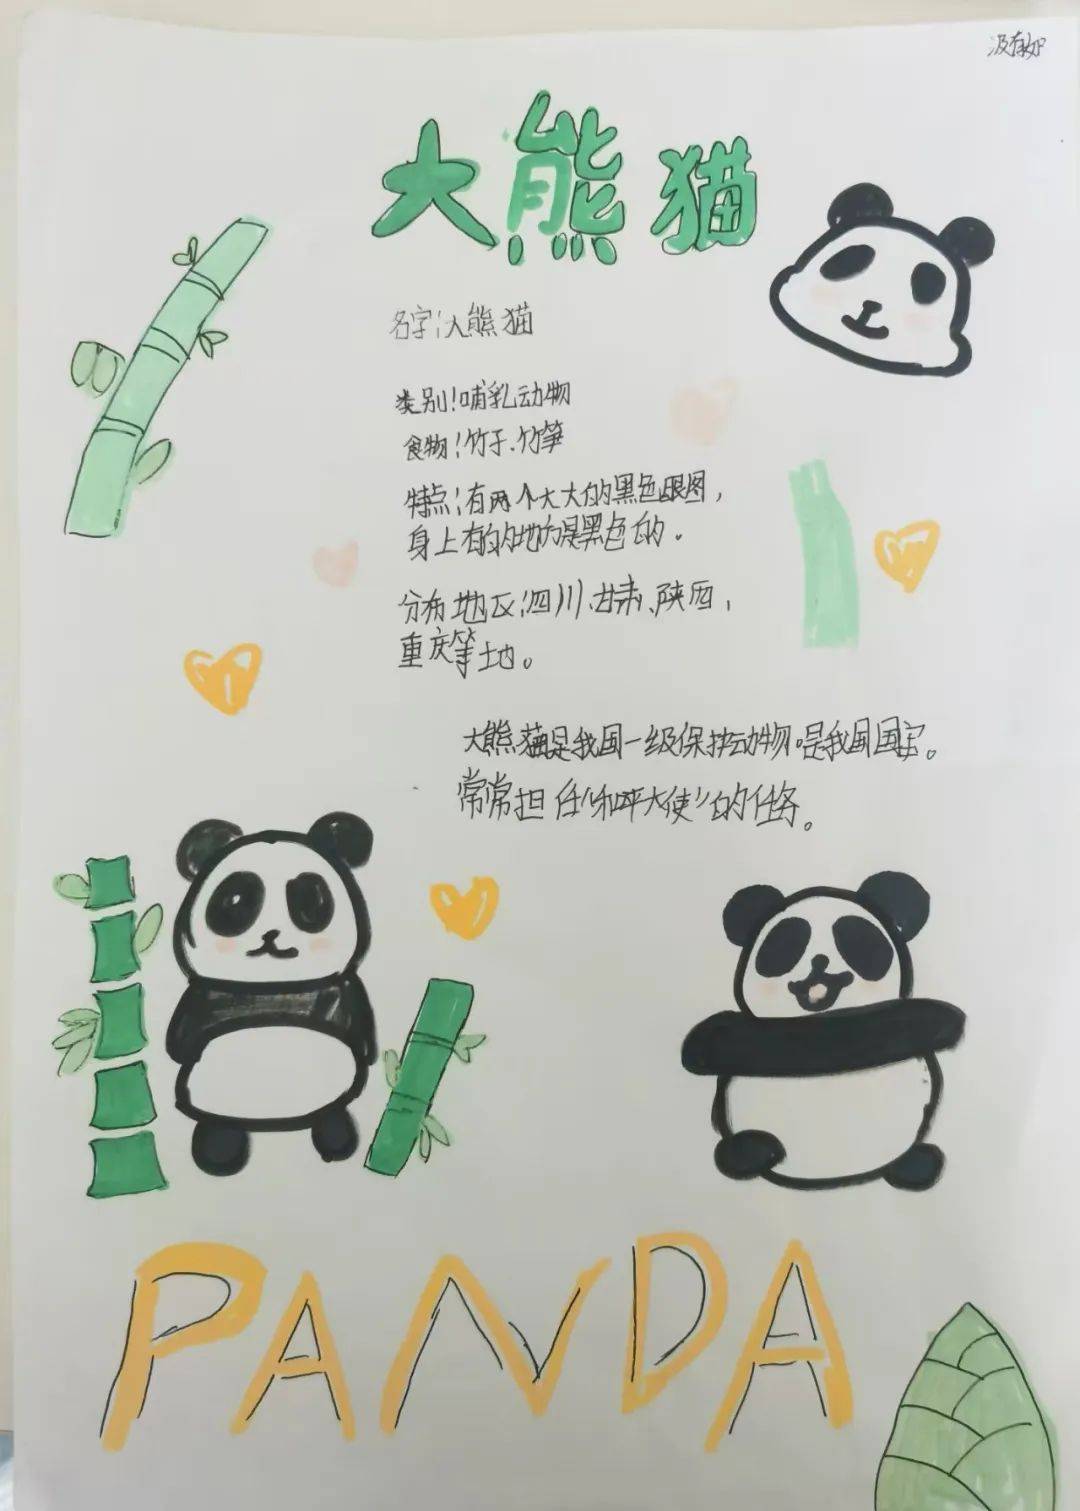 大熊猫
名字:大熊猫
类别:哺乳动物
食物:竹子、竹笋
特点:有两个大大的黑色眼圈,
身上有的地方是黑色的。
分布地区:四川、甘肃、陕西,
重庆等地。
大熊猫是我国一级保护动物。是我国国宝。
常常担任“和平大使”的任务。
PANDA